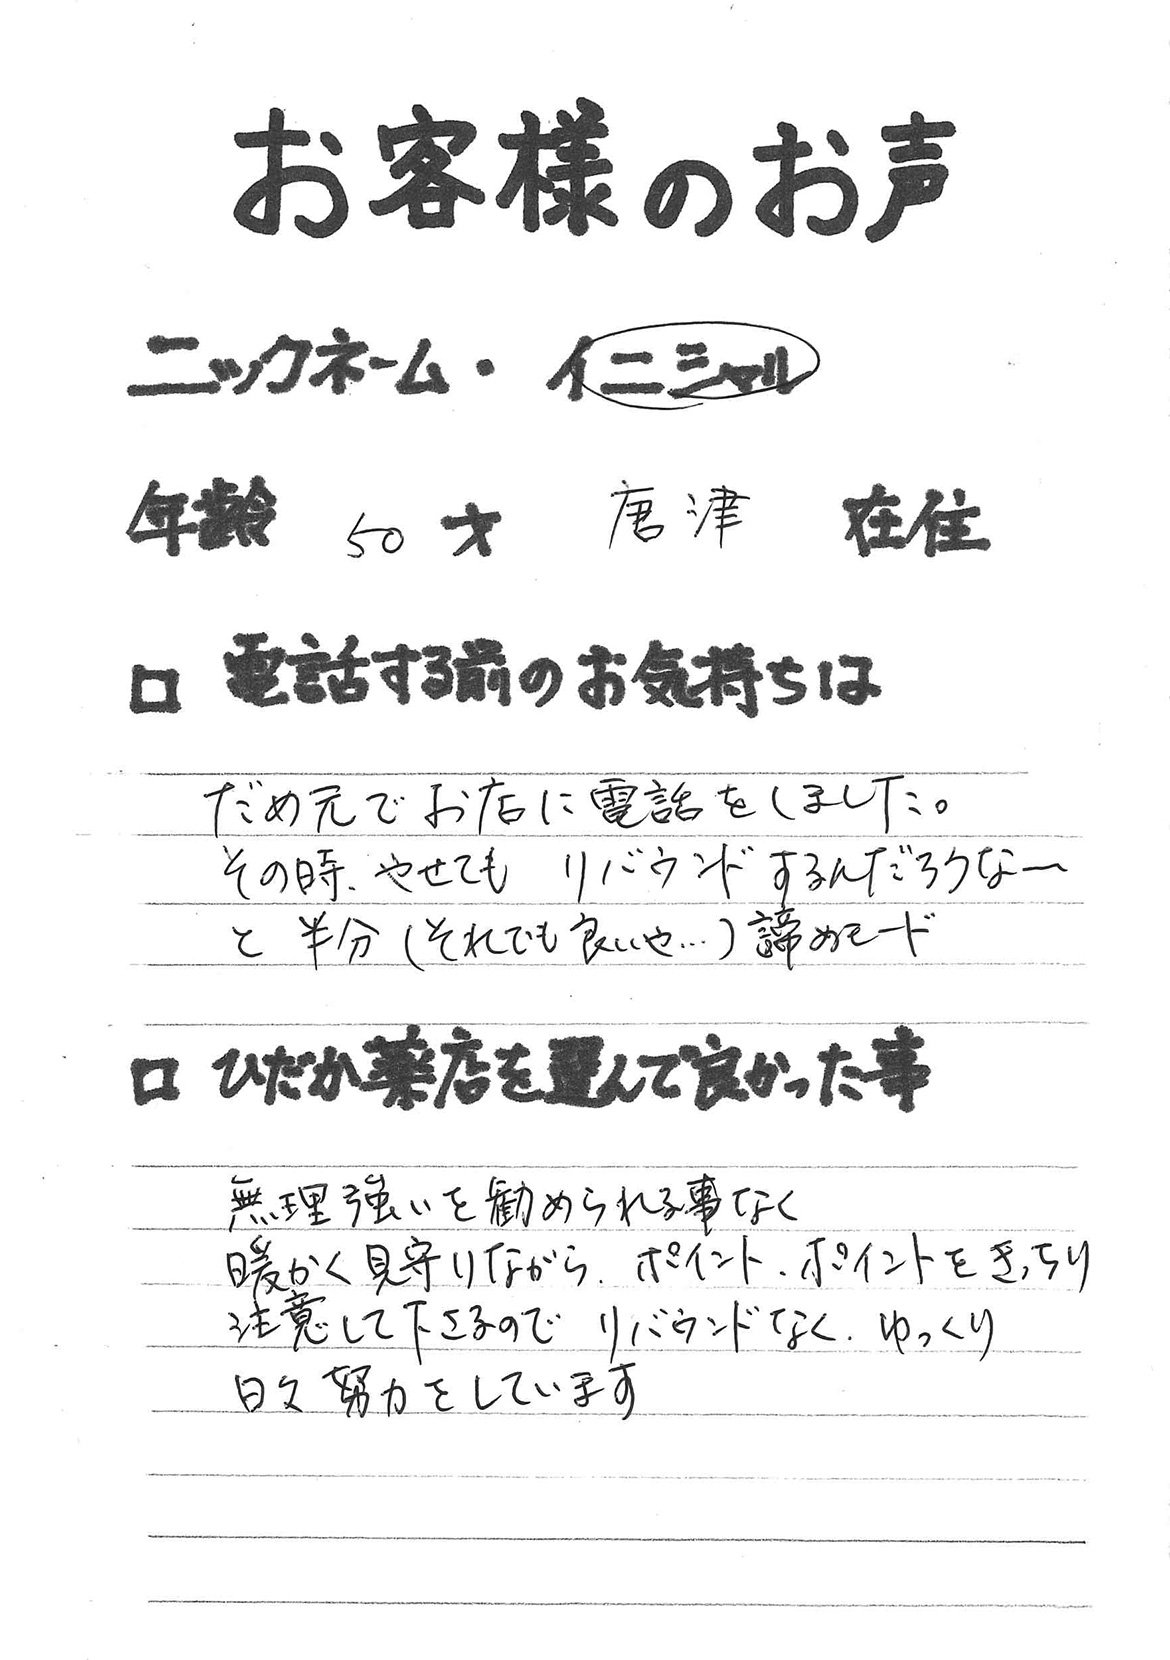 お客様のお声
ニックネーム・イニシャル
年齢 50 才 唐津 在住
□ 電話する前のお気持ちは
だめ元でお店に電話をしました。
その時、やせても リバウンドするんだろうなー
と 半分(それでも良いや…)諦めモード
□ ひだか薬店を選んで良かった事
無理強いを勧められる事なく
暖かく見守りながら、ポイント、ポイントをきっちり
注意して下さるので リバウンドなく、ゆっくり
日々努力をしています